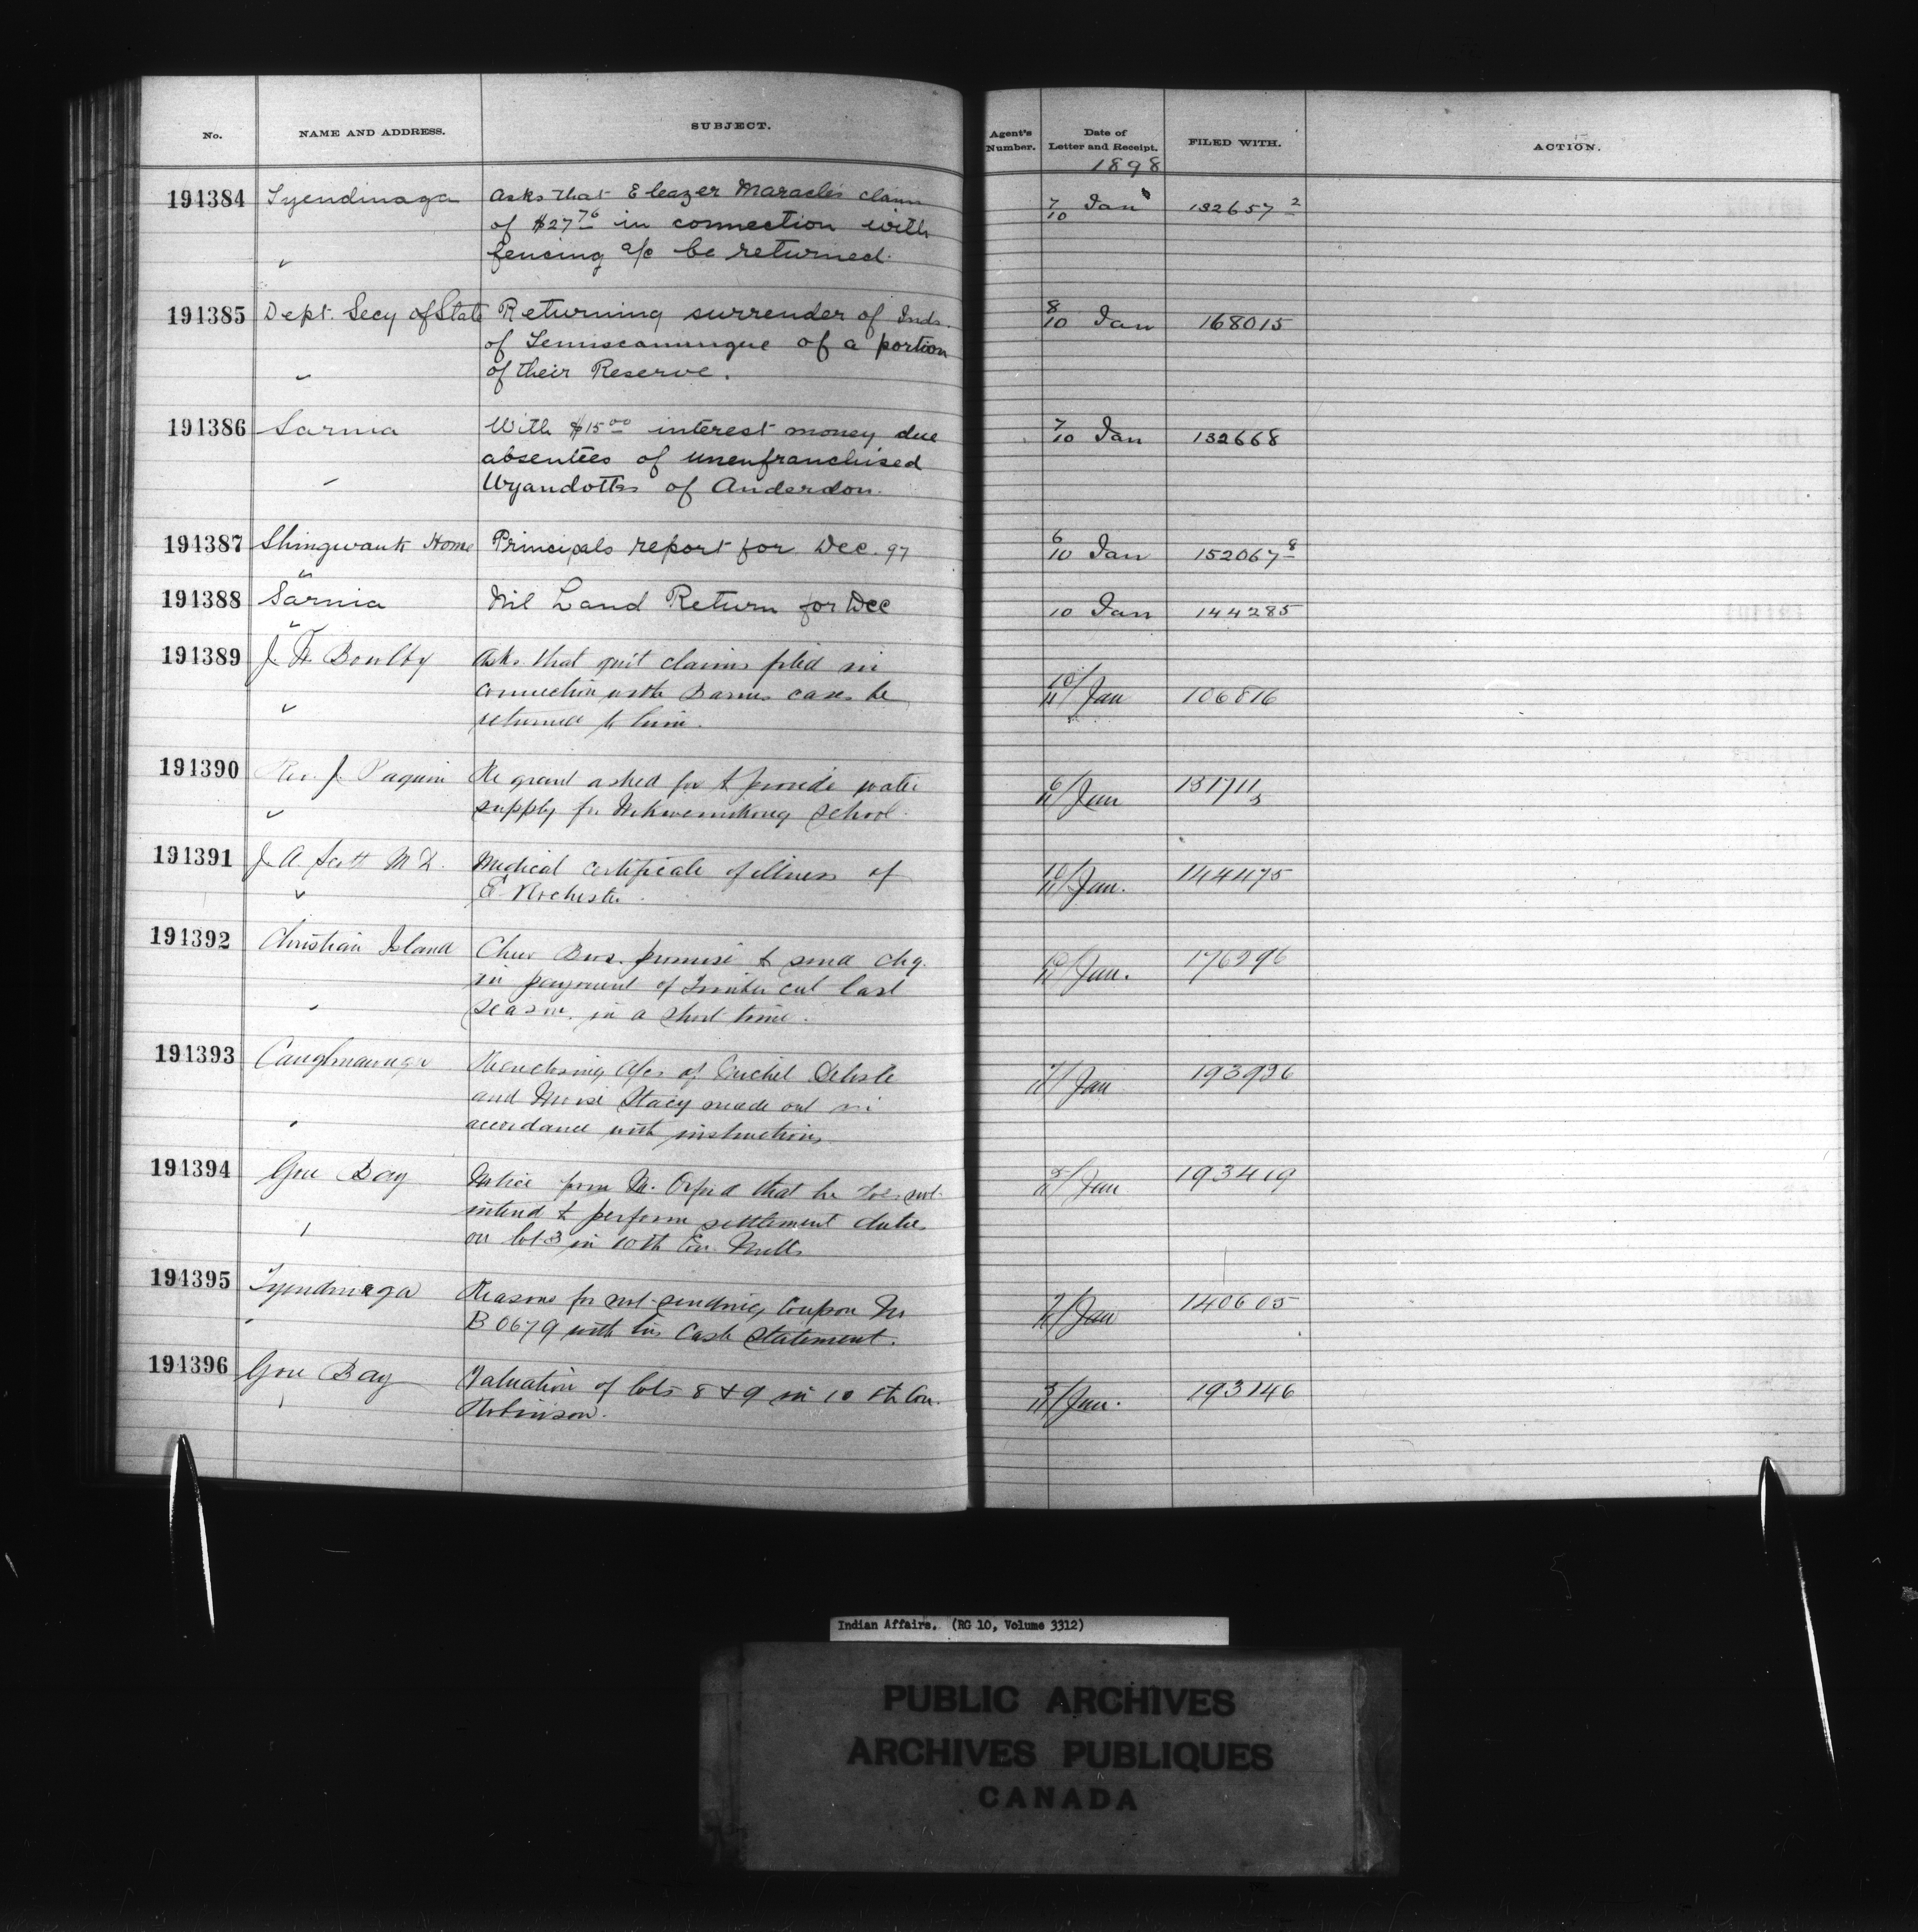 No. NAME AND ADDRESS. SUBJECT. Agent's Number. Date of Letter and Receipt. FILED WITH. ACTION.
1898
191384 Tyendinaga Asks that Eleazer Maracle's claim 7/10 Jan 132657 2
of $27 76 in connection with
fencing a/c be returned.
191385 Dept. Secy of State Returning surrender of Inds. 8/10 Jan 168015
of Temiscamingue of a portion
of their Reserve.
191386 Sarnia With $15 00 interest money due 7/10 Jan 132668
absentees of unenfranchised
Wyandotts of Anderdon.
191387 Shingwauk Home Principals report for Dec. 97 6/10 Jan 152067 8
191388 Sarnia Nil Land Return for Dec 10 Jan 144285
191389 J. Boulby Asks that quit claims filed in
connection with Barnes case be 10/11 Jan 106816
returned to him.
191390 Rev. J. Paquin Re grant asked for to provide water 6/11 Jan 151711
supply for Wikwemikong School.
191391 J. A. Scott M D. Medical certificate of illness of 10/11 Jan. 144475
E Rochester.
191392 Christian Island Chew Bros. promise to send chq. 10/11 Jan. 176296
in payment of Timber cut last
season, in a short time.
191393 Caughnawaga Re enclosing a/cs of Michel Delisle /11 Jan 193926
and Stacy made out in
accordance with instructions.
191394 Gore Bay Notice from M. that he does not /11 Jan 193419
intend to perform settlement duties
on lot 3 in 10th Con. Mills
191395 Tyendinaga Reasons for not sending Coupon No /11 Jan 140605
B 0679 with his Cash Statement.
191396 Gore Bay Valuation of lots 8 & 9 in 10th Con. /11 Jan. 193146
Robinson.
Indian Affairs. (RG 10, Volume 3312)
PUBLIC ARCHIVES
ARCHIVES PUBLIQUES
CANADA